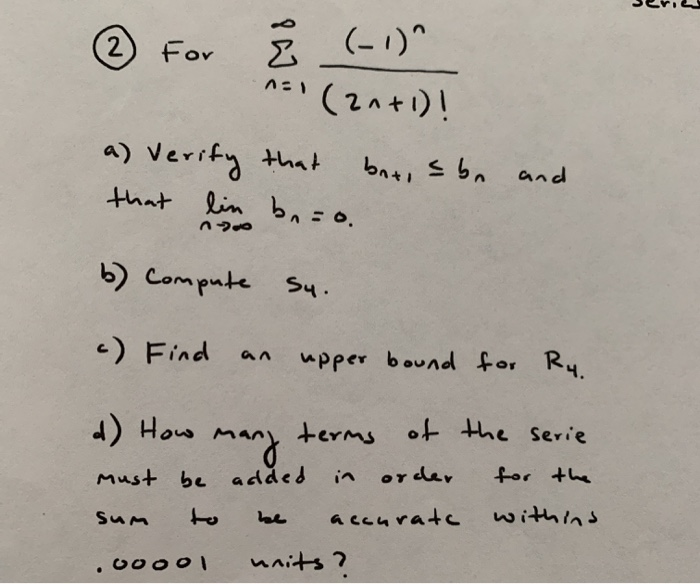 series
② For ∞ Σ n=1 (-1)^n / (2n+1)!
a) Verify that bₙ₊₁ ≤ bₙ and
that lim n→∞ bₙ = 0.
b) Compute S₄.
c) Find an upper bound for R₄.
d) How many terms of the serie
must be added in order for the
sum to be accurate withins
.00001 units?